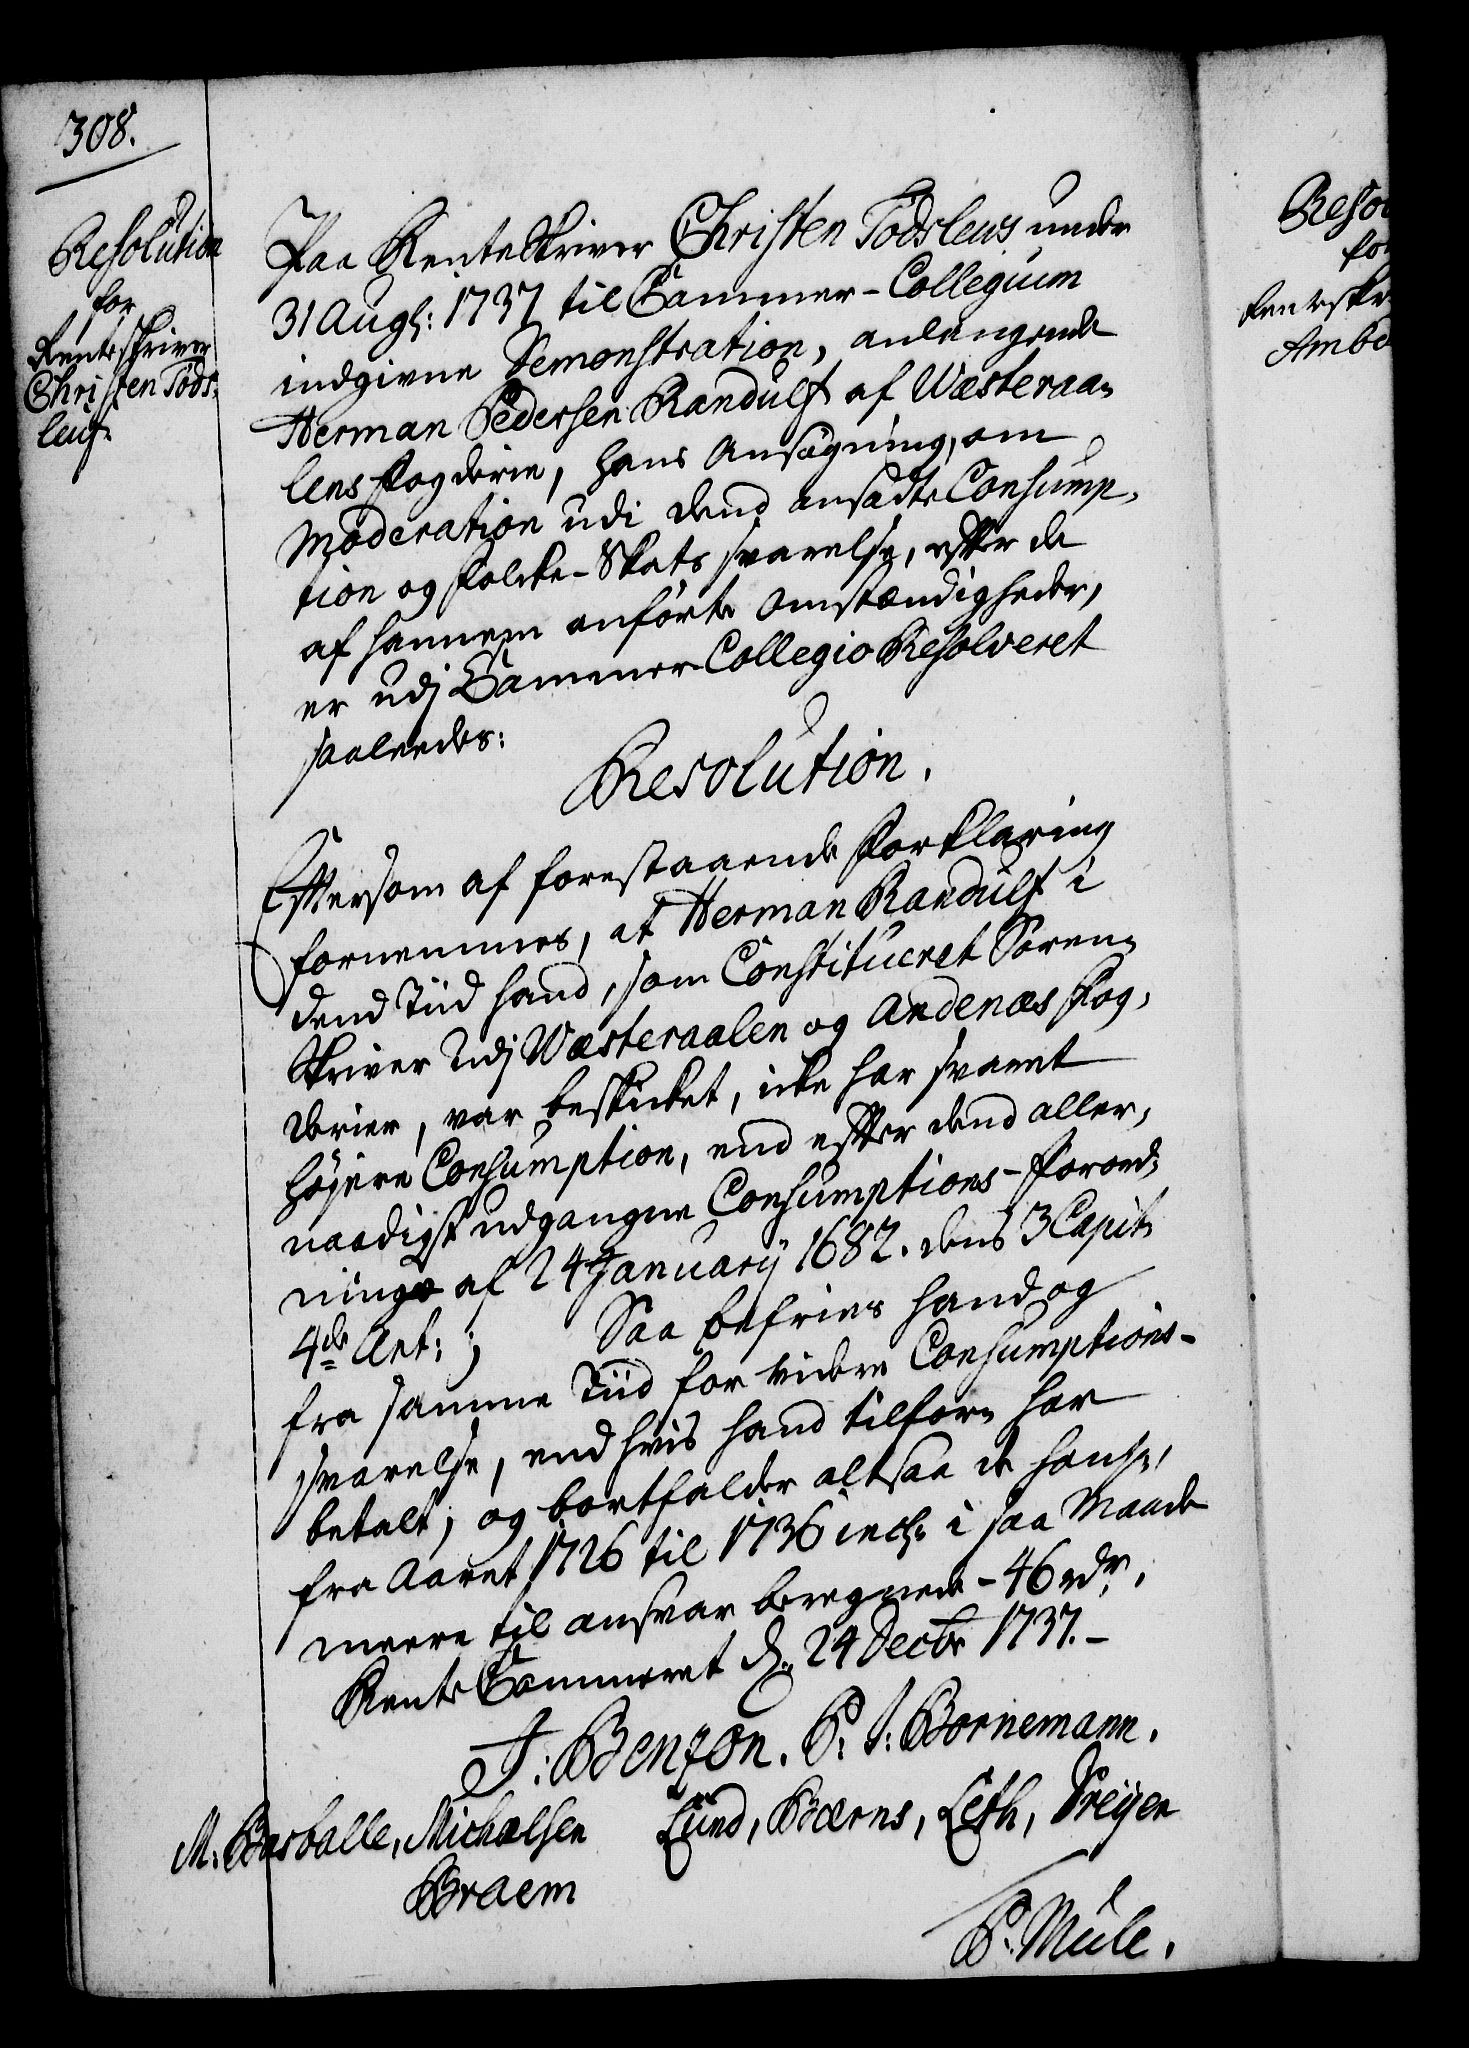 308.
Resolution
for
Renteskriver
Christen Töds-
leuf.
Paa Renteskriver Christen Tödsleus under
31 Augs: 1737 til Cammer-Collegium
indgivne Demonstration, anlangende
Herman Pedersen Randulf af Wæsteraa-
lens Fogderie, hans Ansögning, om
Moderation udi dend ansadte Consump-
tion og Folke-Skats svarelse, efter de
af hannem anförte Omstændigheder,
er udj Cammer Collegio Resolveret
saaleedes:
Resolution.
Eftersom af forestaaende Forklaring
fornemmes, at Herman Randulf i
dend Tiid hand, som Constitueret Soren-
skriver Udj Wæsteraalen og Andenæs Fog-
derier, var beskicket, icke har svaret
höjere Consumption, end efter dend aller-
naadigst udgangne Consumptions-Forord-
ning af 24 January 1682. dens 3 Capit:
4de Art:; Saa befries hand og
fra samme Tiid for videre Consumptions-
svarelse, end hvis hand tilforn har
betalt; og bortfalder altsaa de ham
fra Aaret 1726 til 1736 incl: i saa Maade
meere til ansvar beregnede - 46 rdr.
Rente Cammeret d. 24 Decbr 1737.-
J: Benzon. P. J: Bornemann.
M: Basballe, Michælsen Lund, Bærns, Leth, Dreyer
Braem
P. Mule.
Resol
for
Renteskr
Ambe